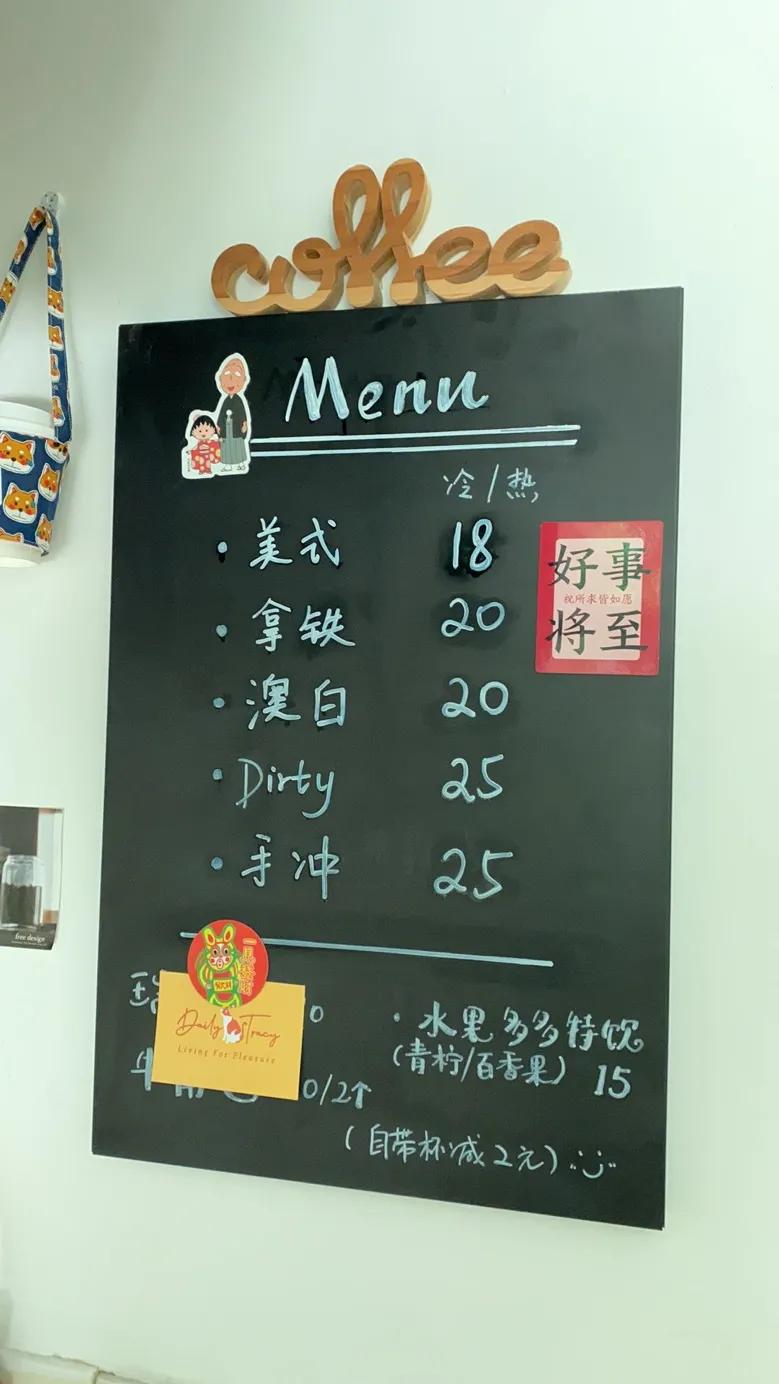 coffee
Menu
冷/热
·美式 18
·拿铁 20
·澳白 20
·Dirty 25
·手冲 25
好事
祝所求皆如愿
将至
Daily Tracy
Living For Pleasure
0/2个
·水果多多特饮
(青柠/百香果) 15
(自带杯减2元)
free design